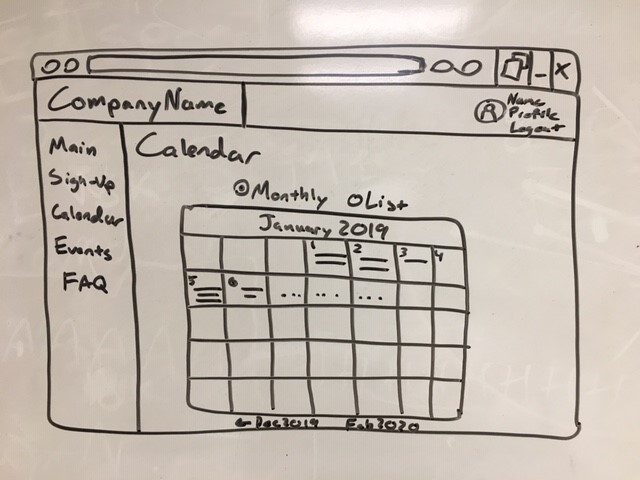 CompanyName
Name
Profile
Logout
Main
Sign-Up
Calendar
Events
FAQ
Calendar
Monthly List
January 2019
1 2 3 4
5 6 ... ... ...
← Dec2019 Feb2020